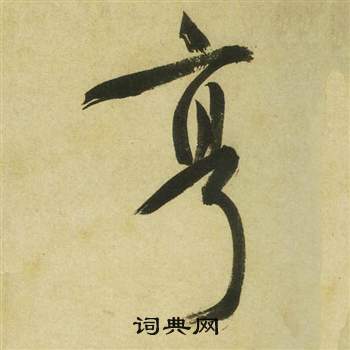 亨
词典网